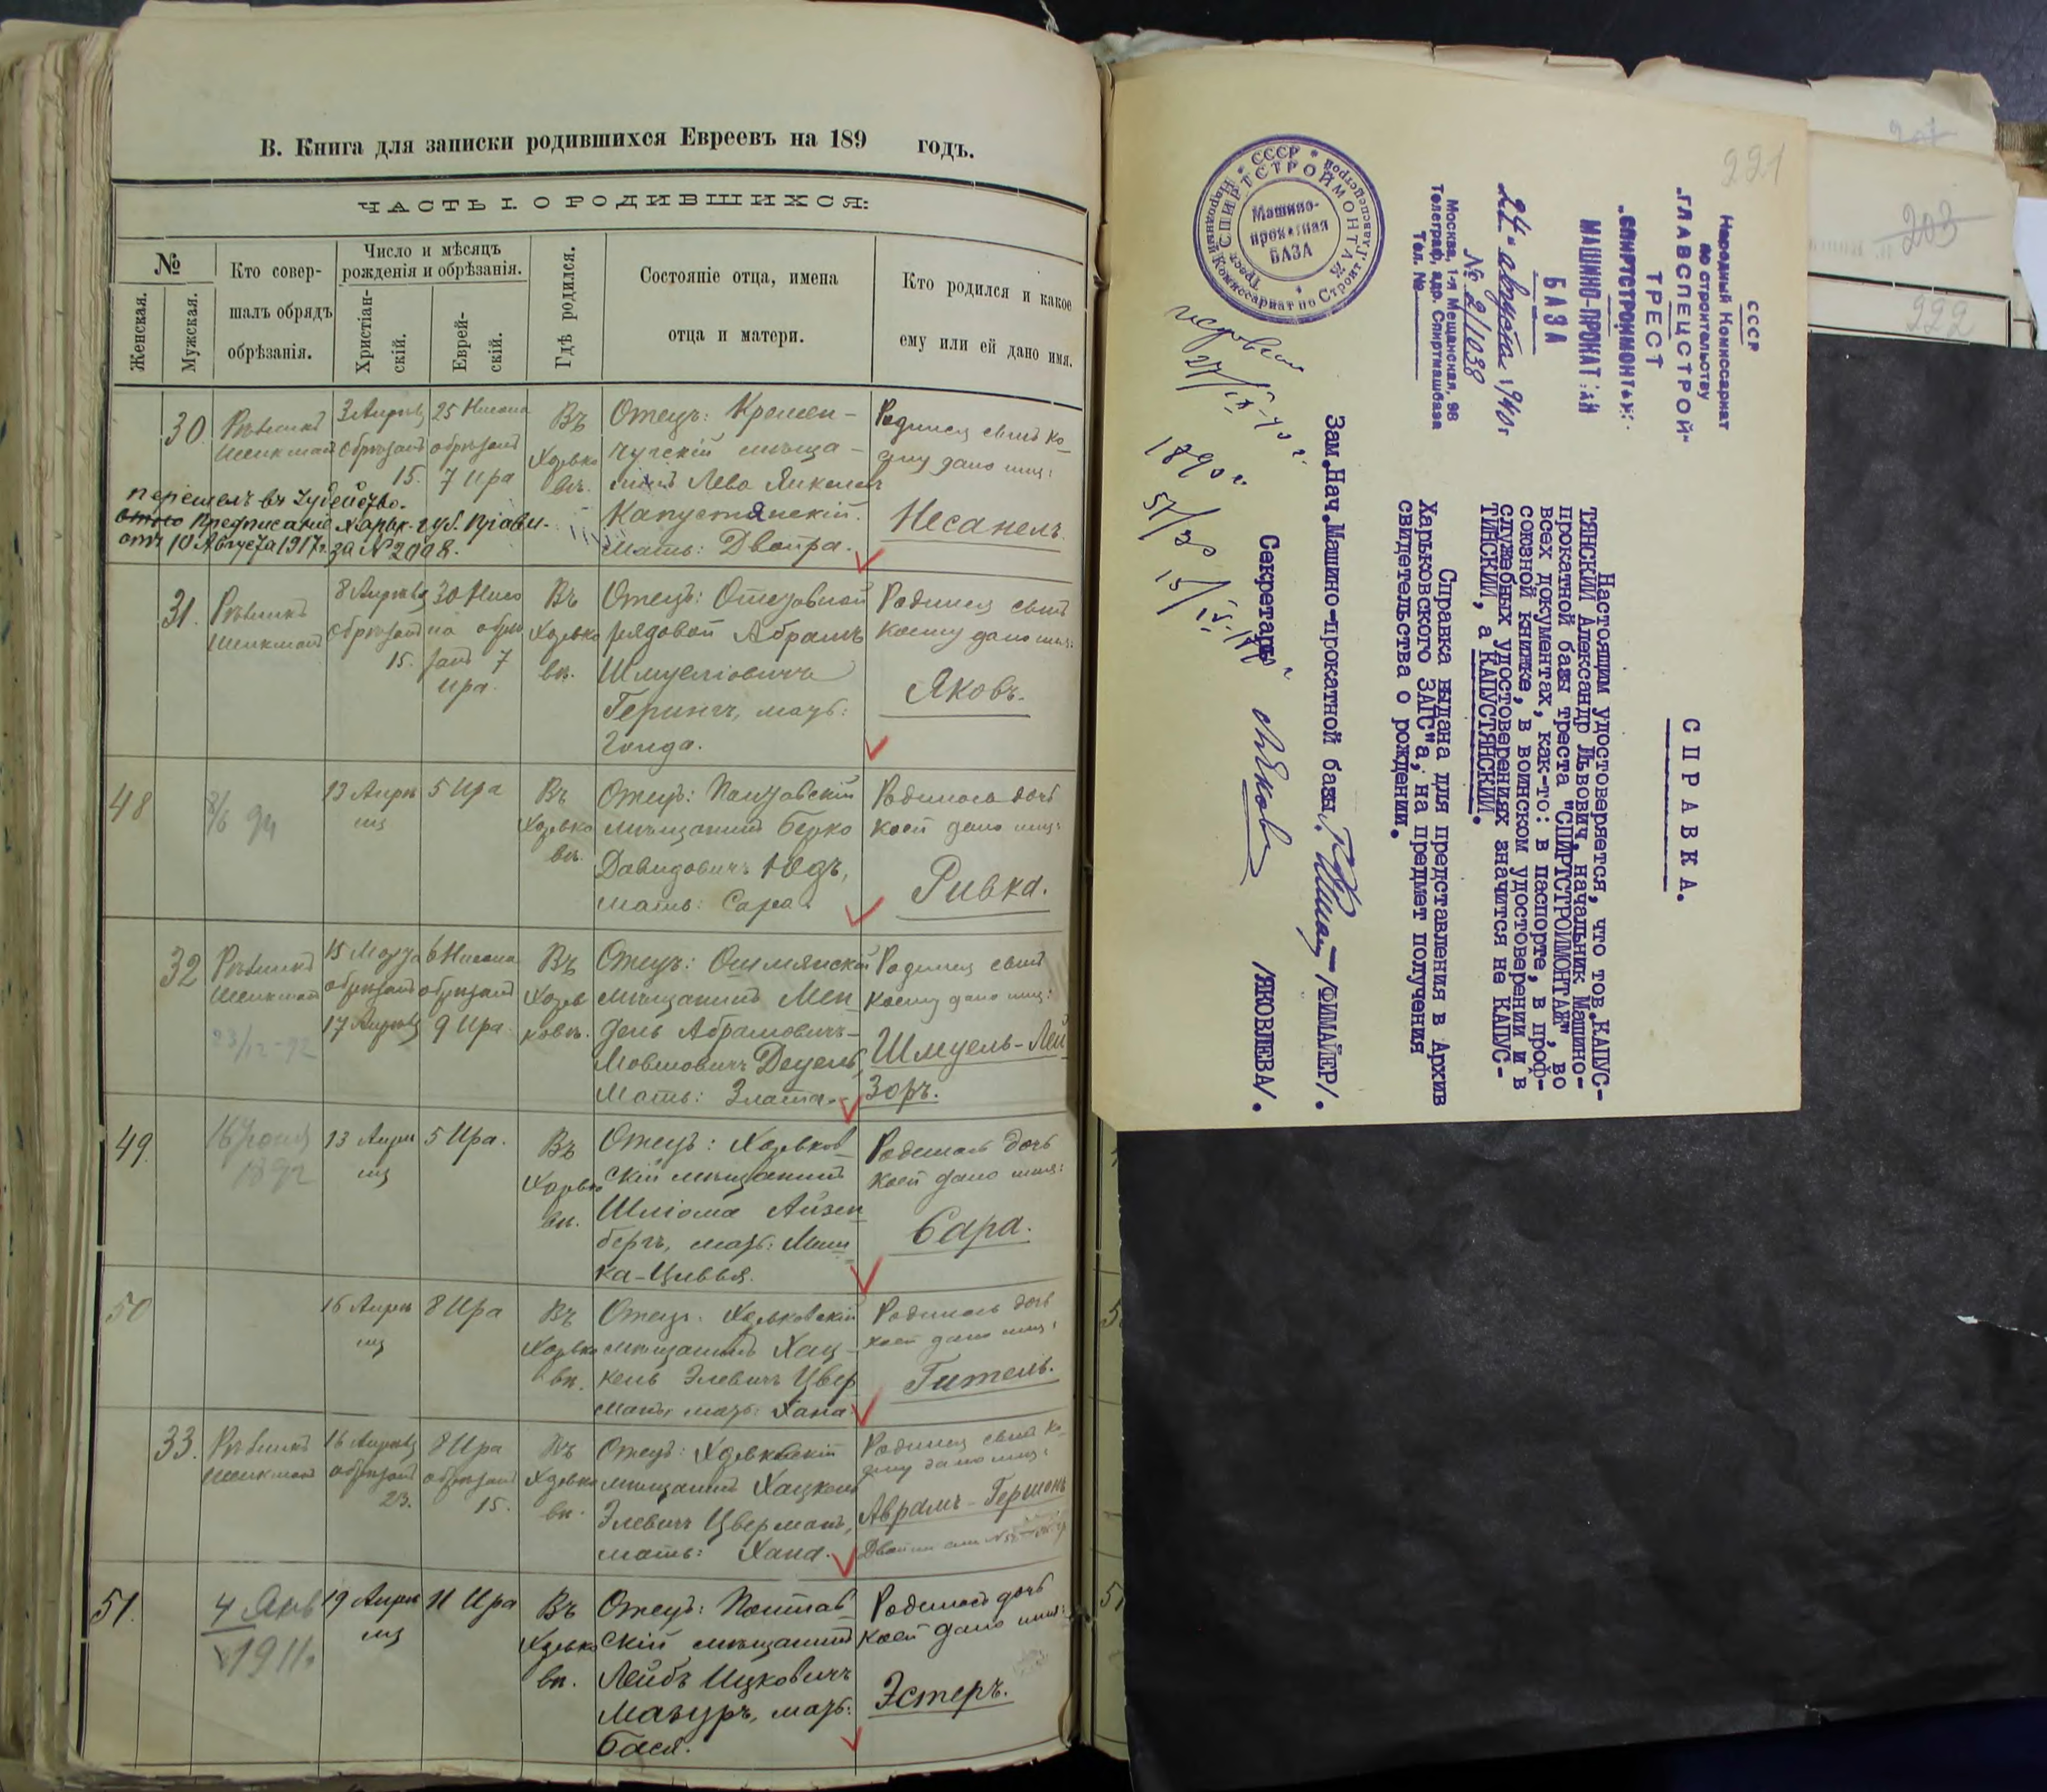 В. Книга для записки родившихся Евреевъ на 189 годъ.
ЧАСТЬ I. О РОДИВШИХСЯ:
№
Женская.
Мужская.
Кто совер-
шалъ обрядъ
обрѣзанія.
Число и мѣсяцъ
рожденія и обрѣзанія.
Христіан-
скій.
Еврей-
скій.
Гдѣ родился.
Состояніе отца, имена
отца и матери.
Кто родился и какое
ему или ей дано имя.
30
Рѣвинъ
Шейкманъ
3 Апрѣля
обрѣзанъ
15.
25 Нисана
обрѣзанъ
7 Ира
Въ
Харько
вѣ.
Отецъ: Кремен-
чугскій мѣща-
нинъ Лева Янкелев
Капустянскій.
Мать: Двойра.
Родился сынъ ко-
ему дано имя:
Несанелъ.
перешелъ въ
Предписаніе Харьк. губ. Правл.
отъ 10 Августа 1917 г. за № 2098.
31.
Рѣвинъ
Шейкманъ
8 Апрѣля
обрѣзанъ
15.
30 Ниса
на обрѣ
занъ 7
Ира.
Въ
Харько
вѣ.
Отецъ: Отставной
рядовой Абрамъ
Шмуеліовичъ
Герингъ, мать:
Голда.
Родился сынъ
коему дано имя:
Яковъ.
48
13 Апрѣ
ля
5 Ира
Въ
Харько
вѣ.
Отецъ: Полтавскій
мѣщанинъ Берко
Давидовичъ Юдъ,
мать: Сара.
Родилась дочь
коей дано имя:
Ривка.
32
Рѣвинъ
Шейкманъ
23/12-92
15 Марта
обрѣзанъ
17 Апрѣля
6 Нисана
обрѣзанъ
9 Ира
Въ
Харь
ковѣ.
Отецъ: Ошмянскій
мѣщанинъ Мен
дель Абрамовичъ-
Мовшовичъ Децель,
Мать: Злата.
Родился сынъ
коему дано имя:
Шмуель-Лей
зоръ.
49.
1892
13 Апрѣ
ля
5 Ира.
Въ
Харько
вѣ.
Отецъ: Харьков
скій мѣщанинъ
Шліома Айзен
бергъ, мать: Мин
ка-Цивья.
Родилась дочь
коей дано имя:
Сара.
50
16 Апрѣ
ля
8 Ира
Въ
Харько
вѣ.
Отецъ: Харьковскій
мѣщанинъ Хац-
кель Элевичъ Цвер
манъ, мать: Хана
Родилась дочь
коей дано имя:
Гитель.
33.
Рѣвинъ
Шейкманъ
16 Апрѣля
обрѣзанъ
23.
8 Ира
обрѣзанъ
15.
Въ
Харько
вѣ.
Отецъ: Харьковскій
мѣщанинъ Хацкель
Элевичъ Цверманъ,
мать: Хана.
Родился сынъ ко-
ему дано имя:
Аврамъ-Гершонъ
51.
4 Янв
1911.
19 Апрѣ
ля
11 Ира
Въ
Харько
вѣ.
Отецъ: Полтав
скій мѣщанинъ
Лейбъ Ицковичъ
Мазуръ, мать:
Бася.
Родилась дочь
коей дано имя:
Эстеръ.
221
СССР
Народный Комиссариат
по строительству
„ГЛАВСПЕЦСТРОЙ“
ТРЕСТ
„СПИРТСТРОЙМОНТАЖ“
МАШИНО-ПРОКАТНАЯ
БАЗА
24 августа 1940 г
№ 2/1038
Москва, 1-я Мещанская, 98
Телеграф. адр. Спиртмашбаза
Тел. №
СССР
Народный Комиссариат по Строит.
Главспецстрой
Трест СПИРТСТРОЙМОНТАЖ
Машино-
прокатная
БАЗА
СПРАВКА.
Настоящим удостоверяется, что тов.КАПУС-
ТЯНСКИЙ Александр Львович, начальник Машино-
прокатной базы треста "СПИРТСТРОЙМОНТАЖ", во
всех документах, как-то: в паспорте, в проф-
союзной книжке, в воинском удостоверении и в
служебных удостоверениях значится не КАПУС-
ТИНСКИЙ, а КАПУСТЯНСКИЙ.
Справка выдана для представления в Архив
Харьковского ЗАГС"а, на предмет получения
свидетельства о рождении.
Зам.Нач.Машино-прокатной базы /ФИМАЙЕР/.
Секретарь /ЯКОВЛЕВА/.
27/IX-40 г.
1890 г.
203
222